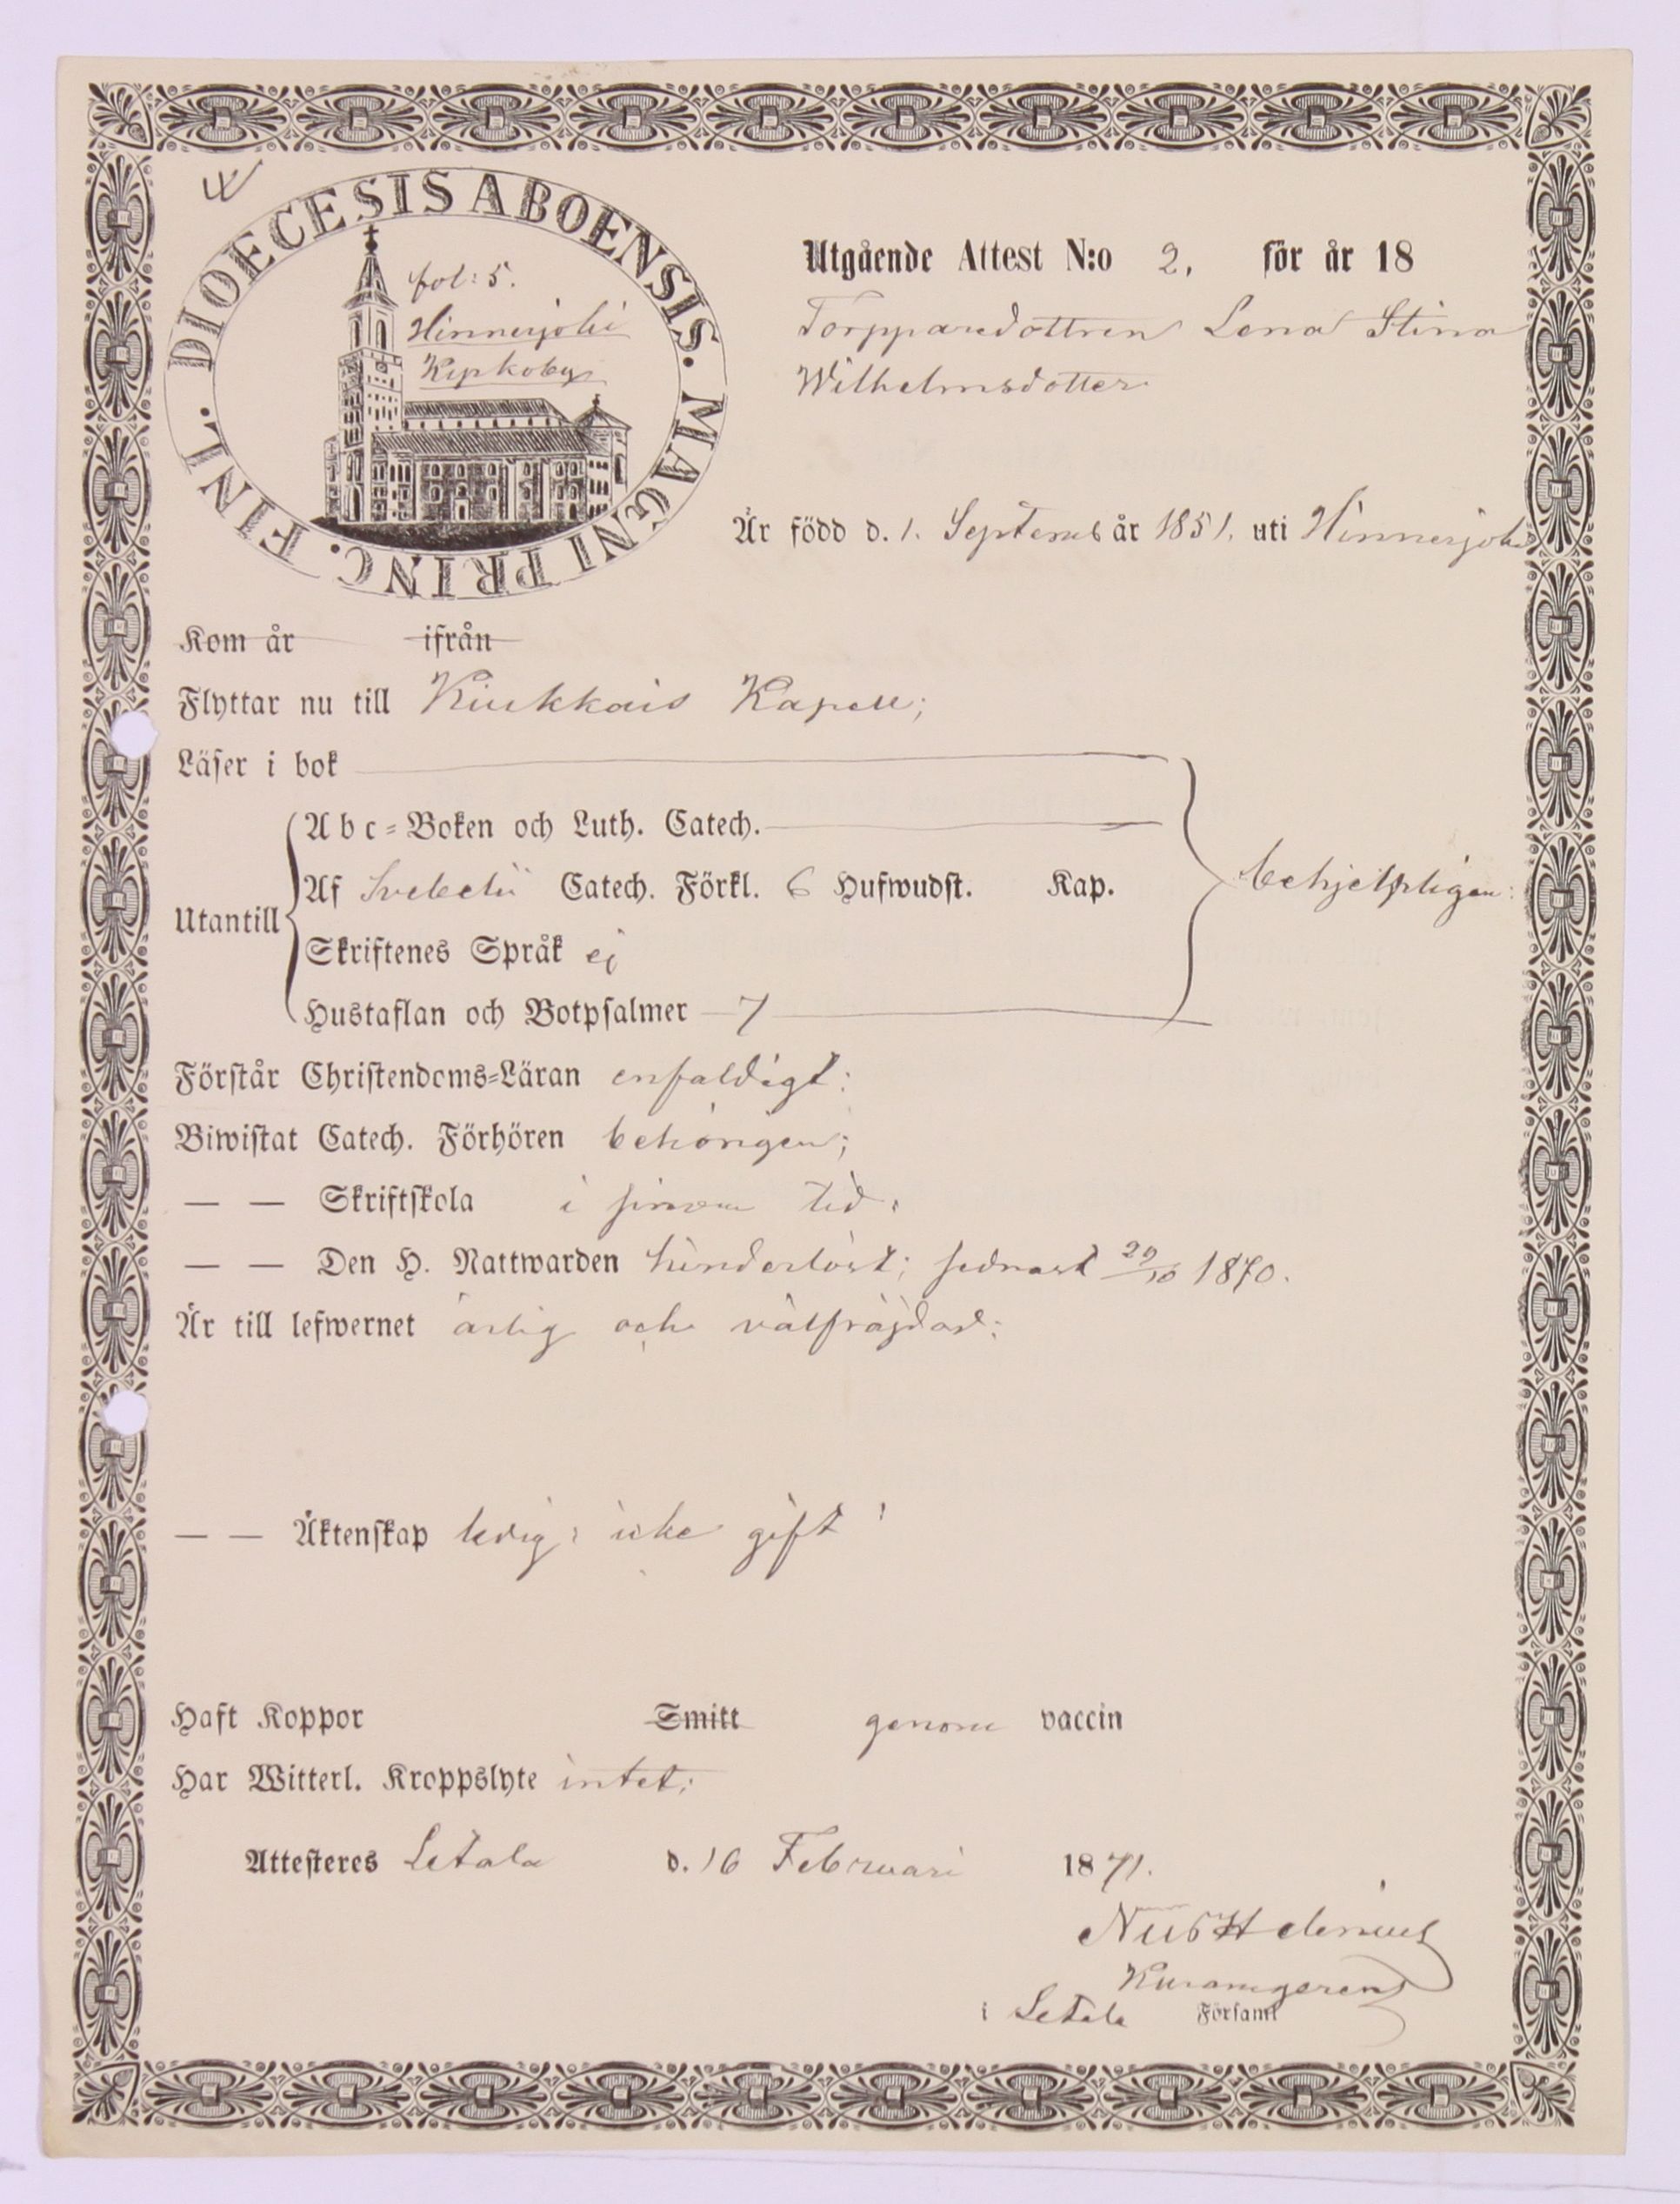 DIOECESIS ABOENSIS. MAGNI PRINC. FINL.
fol: 5.
Hinnerjoki
Kyrkoby
Utgående Attest N:o 2. för år 18
Torpparedottren Lena Stina
Wilhelmsdotter
Är född d. 1. Septemb år 1851. uti Hinnerjoki
Kom år ifrån
Flyttar nu till Kiukkais Kapell;
Läser i bok
Abc-Boken och Luth. Catech.
Utantill
Af Svebelii Catech. Förkl. 6 Hufwudst. Kap.
behjelpligen:
Skriftenes Språk ej
Hustaflan och Botpsalmer 7
Förstår Christendoms-Läran enfaldigt:
Biwistat Catech. Förhören behörigen;
— — Skriftskola i sinom tid:
— — Den H. Nattwarden hinderlöst; sednast 29/10 1870.
Är till lefwernet ärlig och välfräjdad:
— — Äktenskap ledig: icke gift
Haft Koppor Smitt genom vaccin
Har Witterl. Kroppslyte intet:
Attesteres Letala d. 16 Februari 1871.
Nils Helenius
i Letala Församl